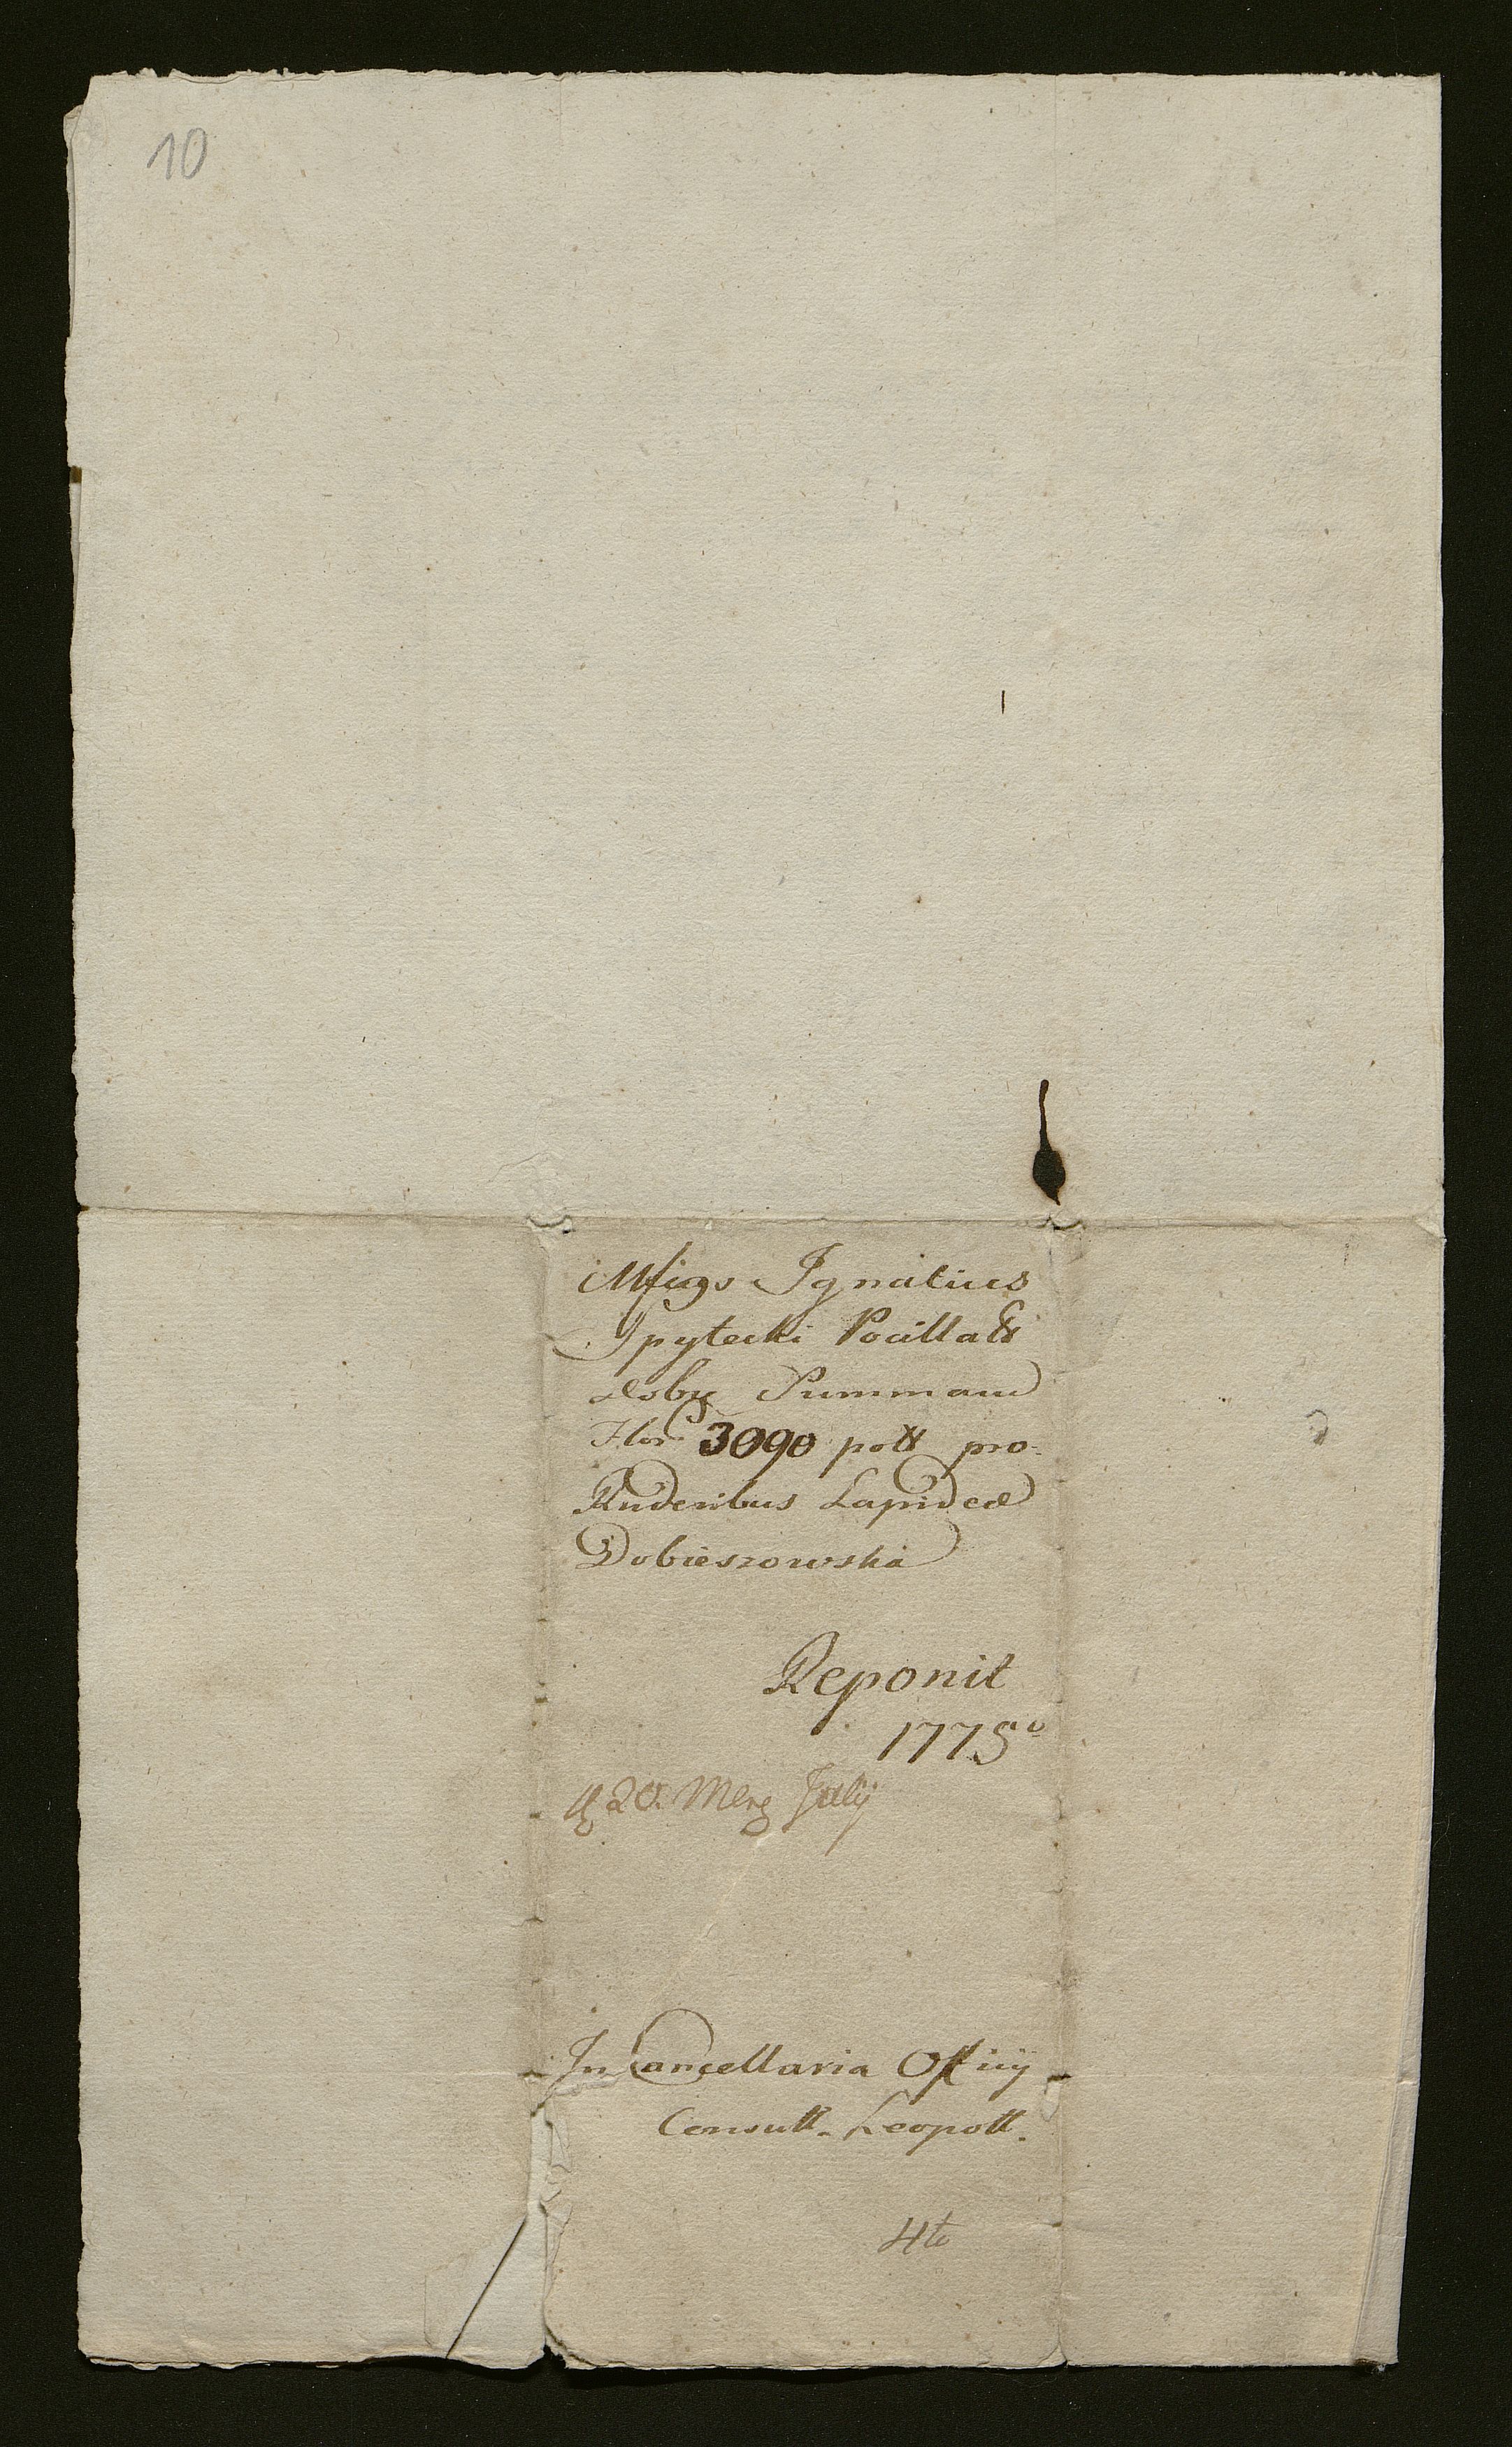 10
Mficus Ignatius
Spytecki Pocillatt
Flor 3090 poll pro
Ruderibus Lapideæ
Dobieszowska
Reponit
1775º
20. Mens July
In Cancellaria Officij
Consull. Leopoll.
4to